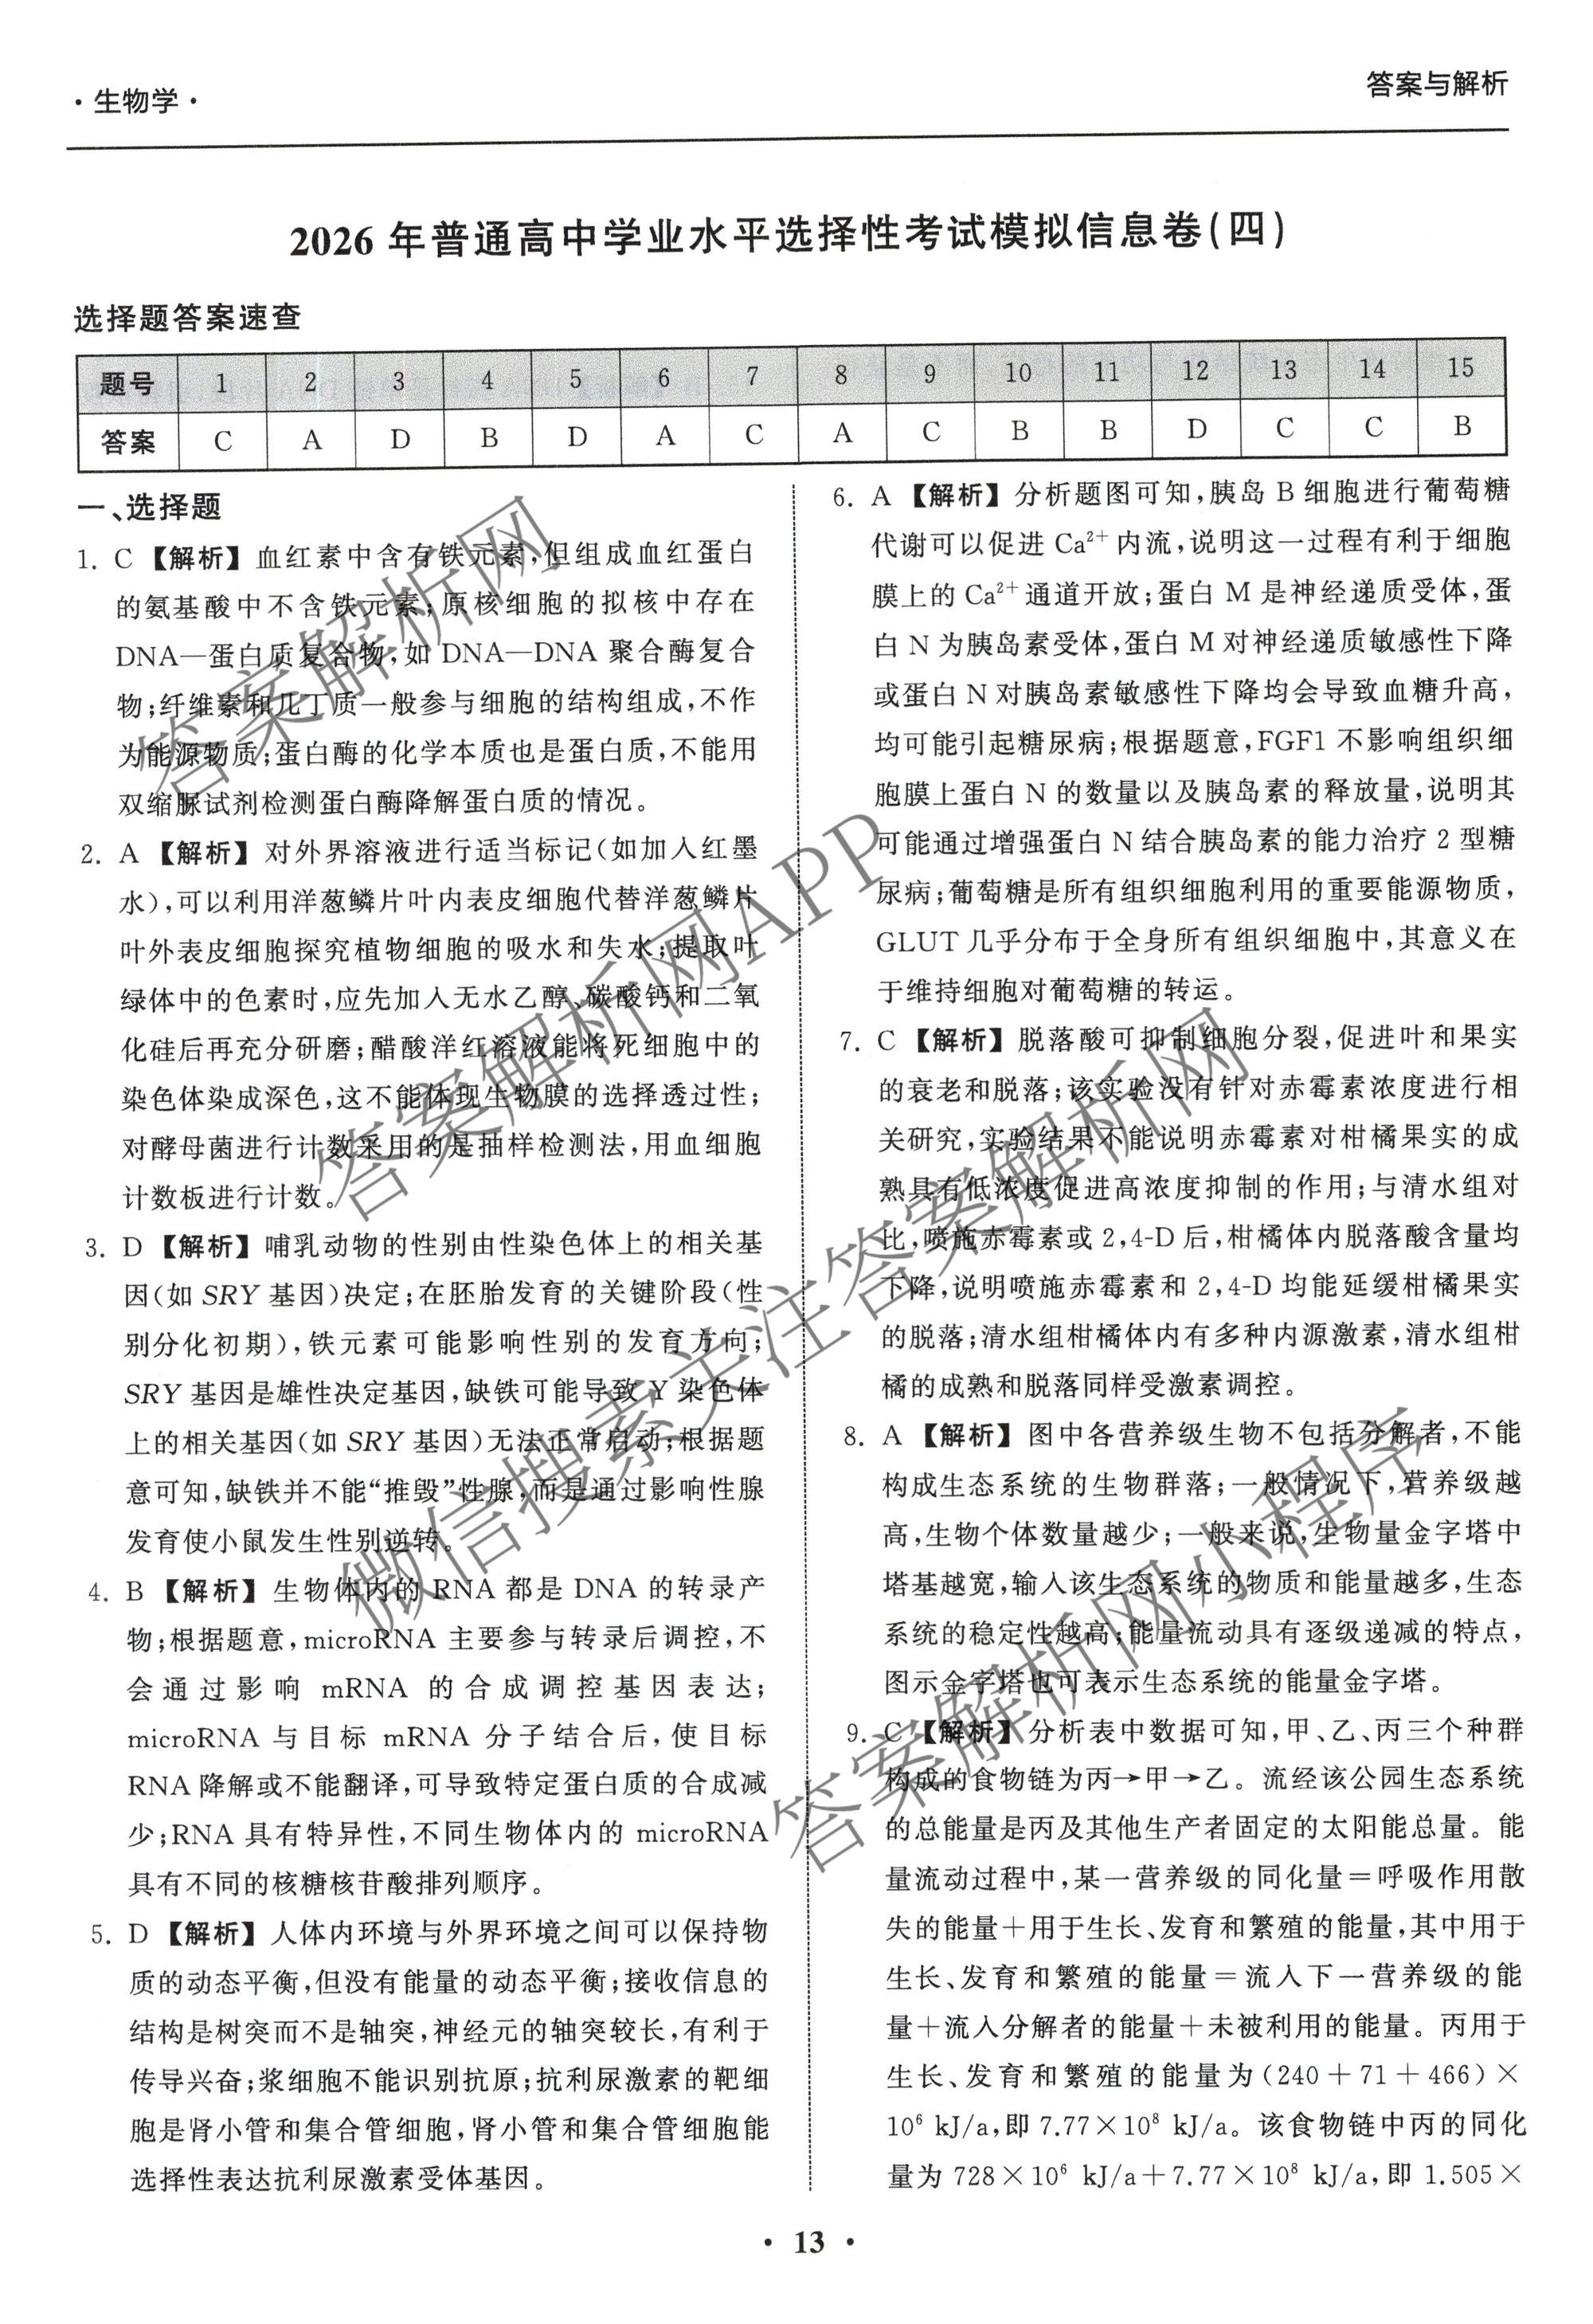 ·生物学·
答案与解析
2026年普通高中学业水平选择性考试模拟信息卷(四)
选择题答案速查
题号 1 2 3 4 5 6 7 8 9 10 11 12 13 14 15
答案 C A D B D A C A C B B D C C B
一、选择题
1. C 【解析】血红素中含有铁元素,但组成血红蛋白
的氨基酸中不含铁元素;原核细胞的拟核中存在
DNA—蛋白质复合物,如 DNA—DNA 聚合酶复合
物;纤维素和几丁质一般参与细胞的结构组成,不作
为能源物质;蛋白酶的化学本质也是蛋白质,不能用
双缩脲试剂检测蛋白酶降解蛋白质的情况。
2. A 【解析】对外界溶液进行适当标记(如加入红墨
水),可以利用洋葱鳞片叶内表皮细胞代替洋葱鳞片
叶外表皮细胞探究植物细胞的吸水和失水;提取叶
绿体中的色素时,应先加入无水乙醇、碳酸钙和二氧
化硅后再充分研磨;醋酸洋红溶液能将死细胞中的
染色体染成深色,这不能体现生物膜的选择透过性;
对酵母菌进行计数采用的是抽样检测法,用血细胞
计数板进行计数。
3. D 【解析】哺乳动物的性别由性染色体上的相关基
因(如 SRY 基因)决定;在胚胎发育的关键阶段(性
别分化初期),铁元素可能影响性别的发育方向;
SRY 基因是雄性决定基因,缺铁可能导致 Y 染色体
上的相关基因(如 SRY 基因)无法正常启动;根据题
意可知,缺铁并不能“推毁”性腺,而是通过影响性腺
发育使小鼠发生性别逆转。
4. B 【解析】生物体内的 RNA 都是 DNA 的转录产
物;根据题意,microRNA 主要参与转录后调控,不
会通过影响 mRNA 的合成调控基因表达;
microRNA 与目标 mRNA 分子结合后,使目标
RNA 降解或不能翻译,可导致特定蛋白质的合成减
少;RNA 具有特异性,不同生物体内的 microRNA
具有不同的核糖核苷酸排列顺序。
5. D 【解析】人体内环境与外界环境之间可以保持物
质的动态平衡,但没有能量的动态平衡;接收信息的
结构是树突而不是轴突,神经元的轴突较长,有利于
传导兴奋;浆细胞不能识别抗原;抗利尿激素的靶细
胞是肾小管和集合管细胞,肾小管和集合管细胞能
选择性表达抗利尿激素受体基因。
6. A 【解析】分析题图可知,胰岛 B 细胞进行葡萄糖
代谢可以促进 Ca²⁺ 内流,说明这一过程有利于细胞
膜上的 Ca²⁺ 通道开放;蛋白 M 是神经递质受体,蛋
白 N 为胰岛素受体,蛋白 M 对神经递质敏感性下降
或蛋白 N 对胰岛素敏感性下降均会导致血糖升高,
均可能引起糖尿病;根据题意,FGF1 不影响组织细
胞膜上蛋白 N 的数量以及胰岛素的释放量,说明其
可能通过增强蛋白 N 结合胰岛素的能力治疗 2 型糖
尿病;葡萄糖是所有组织细胞利用的重要能源物质,
GLUT 几乎分布于全身所有组织细胞中,其意义在
于维持细胞对葡萄糖的转运。
7. C 【解析】脱落酸可抑制细胞分裂,促进叶和果实
的衰老和脱落;该实验没有针对赤霉素浓度进行相
关研究,实验结果不能说明赤霉素对柑橘果实的成
熟具有低浓度促进高浓度抑制的作用;与清水组对
比,喷施赤霉素或 2,4-D 后,柑橘体内脱落酸含量均
下降,说明喷施赤霉素和 2,4-D 均能延缓柑橘果实
的脱落;清水组柑橘体内有多种内源激素,清水组柑
橘的成熟和脱落同样受激素调控。
8. A 【解析】图中各营养级生物不包括分解者,不能
构成生态系统的生物群落;一般情况下,营养级越
高,生物个体数量越少;一般来说,生物量金字塔中
塔基越宽,输入该生态系统的物质和能量越多,生态
系统的稳定性越高;能量流动具有逐级递减的特点,
图示金字塔也可表示生态系统的能量金字塔。
9. C 【解析】分析表中数据可知,甲、乙、丙三个种群
构成的食物链为丙→甲→乙。流经该公园生态系统
的总能量是丙及其他生产者固定的太阳能总量。能
量流动过程中,某一营养级的同化量=呼吸作用散
失的能量+用于生长、发育和繁殖的能量,其中用于
生长、发育和繁殖的能量=流入下一营养级的能
量+流入分解者的能量+未被利用的能量。丙用于
生长、发育和繁殖的能量为(240+71+466)×
10⁶ kJ/a,即 7.77×10⁸ kJ/a。该食物链中丙的同化
量为 728×10⁶ kJ/a+7.77×10⁸ kJ/a,即 1.505×
·13·
答案解析网
答案解析网APP
微信搜索关注答案解析网
答案解析网小程序